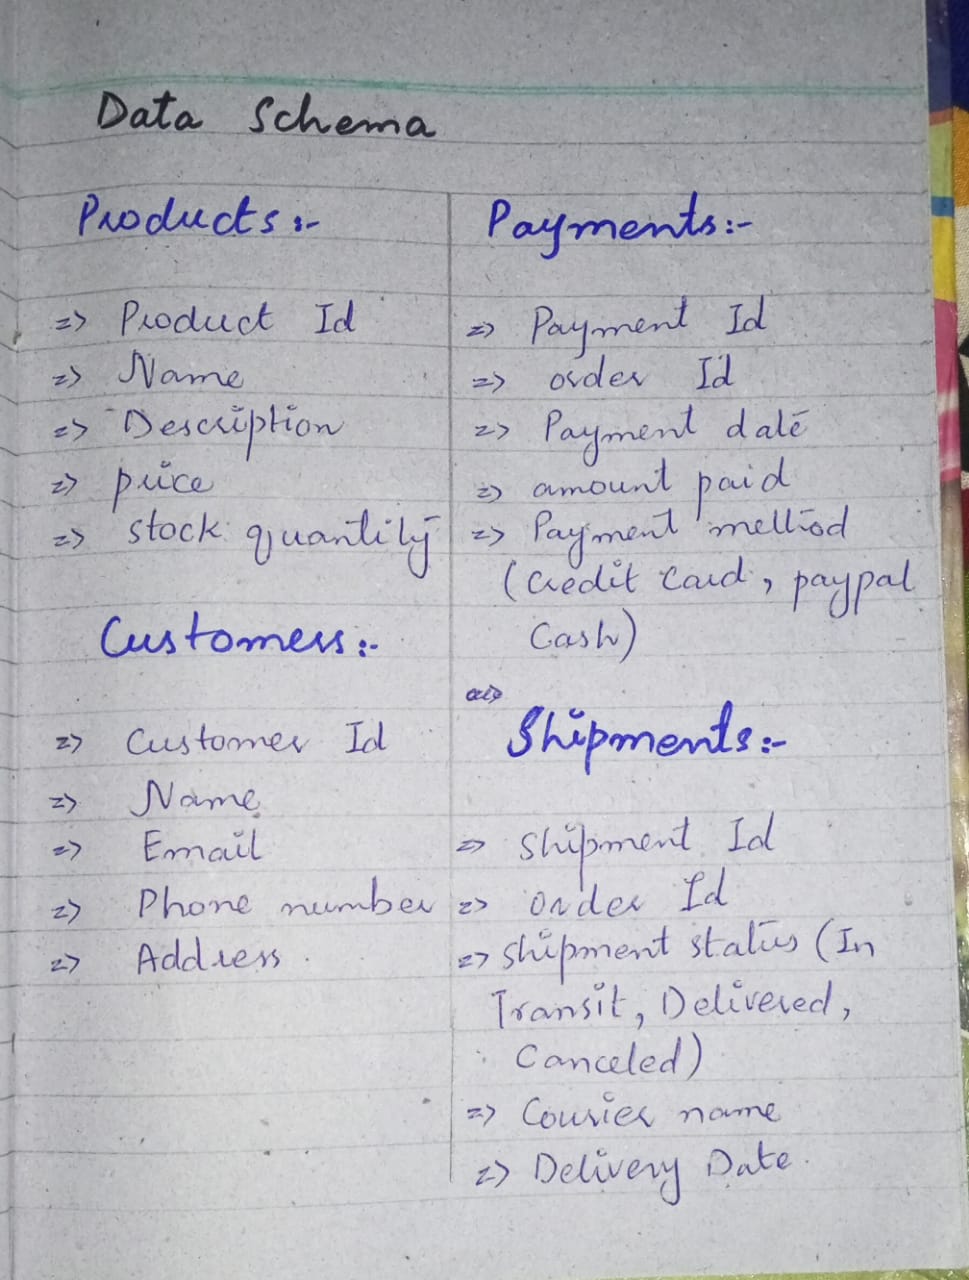 Data Schema
Products:-
=> Product Id
=> Name
=> Description
=> price
=> stock quantity
Customers:-
=> Customer Id
=> Name
=> Email
=> Phone number
=> Address.
Payments:-
=> Payment Id
=> order Id
=> Payment date
=> amount paid
=> Payment method
(Credit Card, paypal
Cash)
Shipments:-
=> Shipment Id
=> order Id
=> shipment status (In
Transit, Delivered,
Canceled)
=> Courier name
=> Delivery Date.